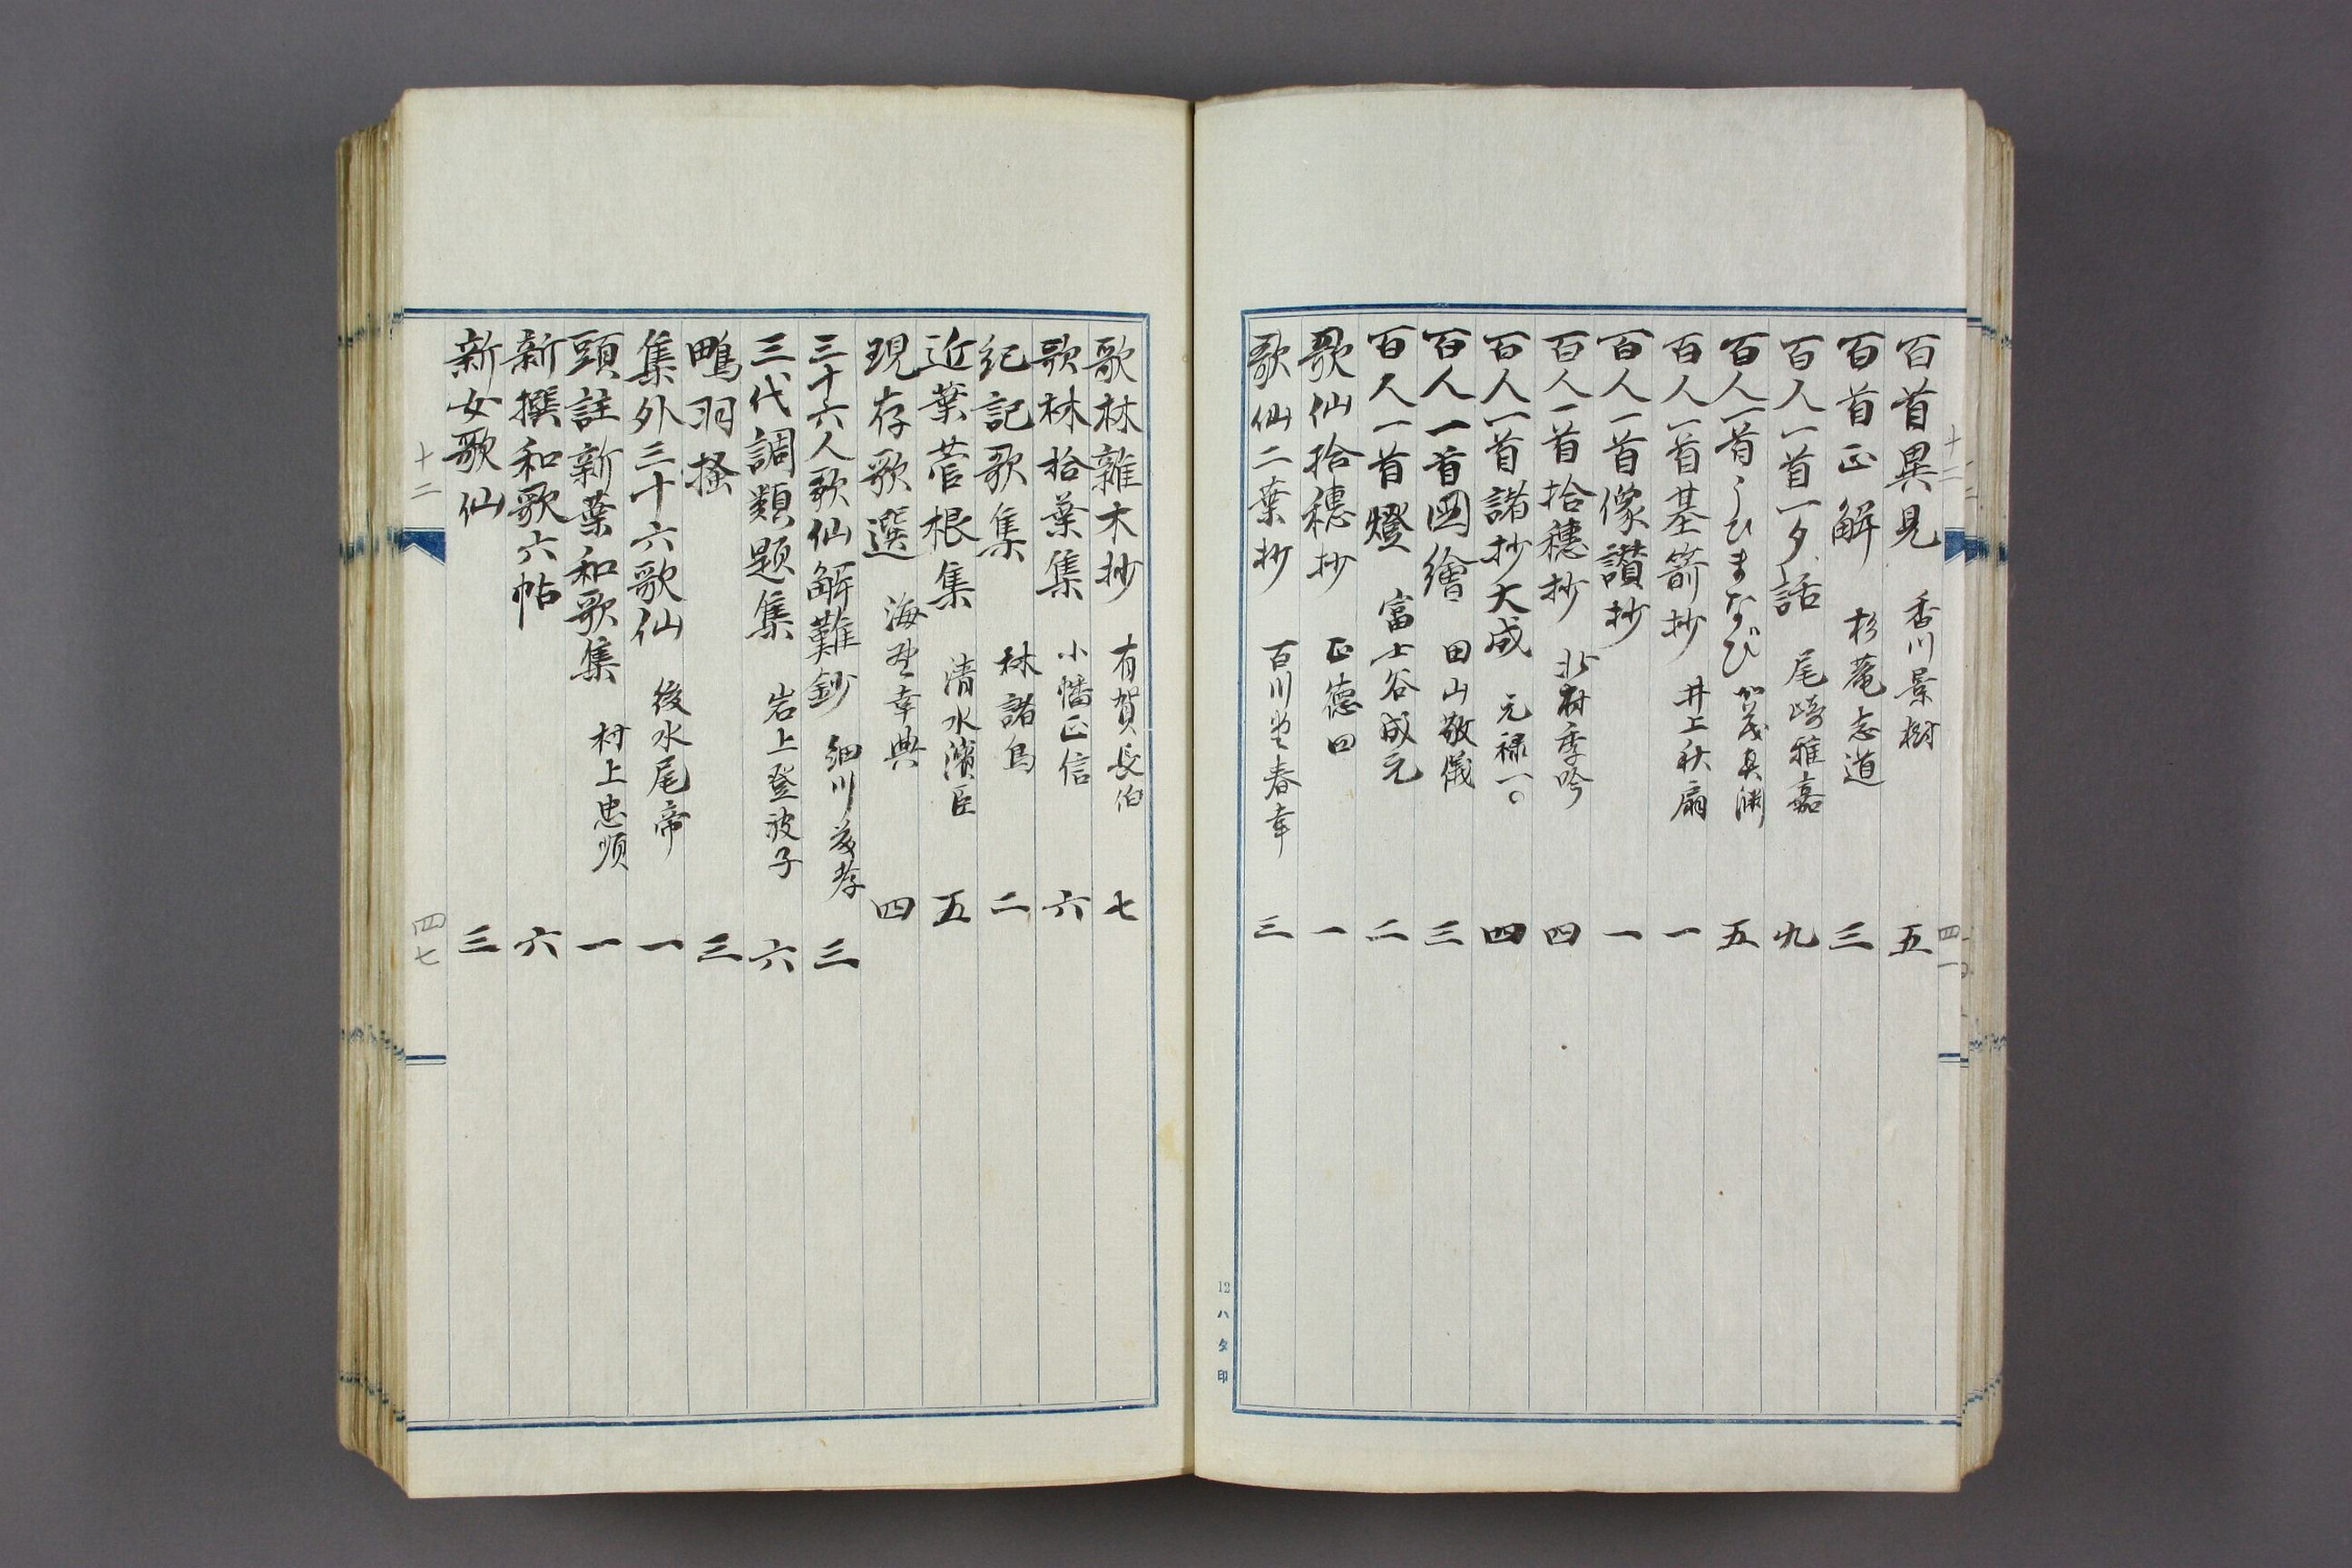 百首異見 香川景樹 五
百首正解 杉菴志道 三
百人一首一夕話 尾崎雅嘉 九
百人一首うひまなび 加茂真渊 五
百人一首基箭抄 井上秋扇 一
百人一首像讃抄 一
百人一首拾穗抄 北村季吟 四
百人一首諸抄大成 元禄一〇 四
百人一首圖繪 田山敬儀 三
百人一首燈 富士谷成元 二
歌仙拾穗抄 正徳四 一
歌仙二葉抄 百川堂春幸 三
12 ハタ印
十二
四一
歌林雜木抄 有賀長伯 七
歌林拾葉集 小幡正信 六
紀記歌集 林諸鳥 二
近葉菅根集 清水濱臣 五
現存歌選 海野幸典 四
三十六人歌仙解難鈔 細川幽孝 三
三代調類題集 岩上登波子 六
鴫羽搔 三
集外三十六歌仙 後水尾帝 一
頭註新葉和歌集 村上忠順 一
新撰和歌六帖 六
新女歌仙 三
十二
四七